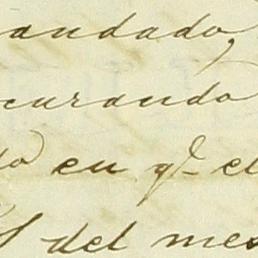 andado,
curando
do en q.l el
del mes